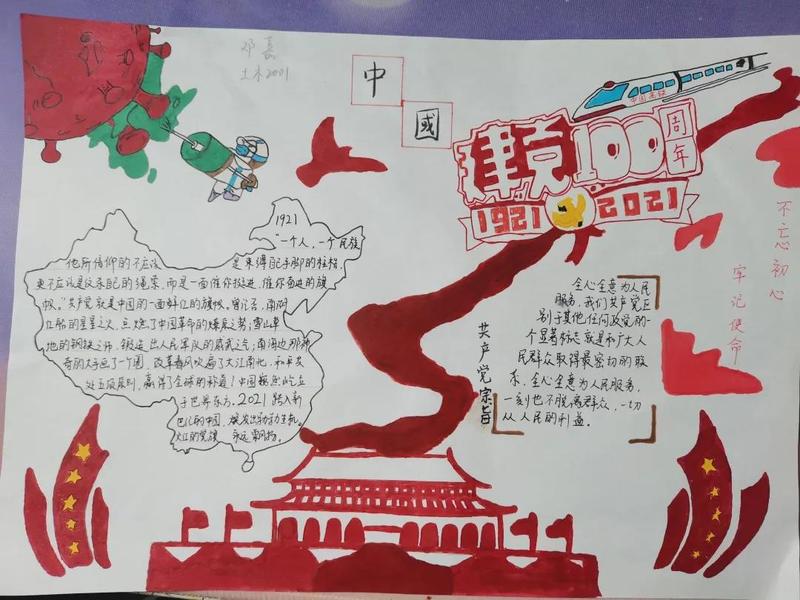 邓 磊
土木2001
中
國
中国高铁
建党100周年
1921 2021
不忘初心
牢记使命
1921
"一个人，一个民族
他所信仰的不应该 是束缚自己手脚的桎梏
更不应该是
而是一面催你投进，催你奋进的旗
帜。"共产党就是中国的一面鲜红的旗帜。曾记否，南湖
红船的星星之火，点燃了中国革命的燎原之势；雪山草
地的钢铁之师，锻造出人民军队的威武之气；南海边那神
奇的大手画了一个圈，改革春风吹遍了大江南北，和平共
处五项原则，赢得了全球的称道！中国
于世界东方。2021 踏入新
世纪的中国，
的党旗 永远
共产党宗旨
全心全意为人民
服务，我们共产党区
别于其他任何政党的一
个显著标志就是和广大人
民群众取得最密切的联
系，全心全意为人民服务，
一刻也不脱离群众，一切
从人民的利益。